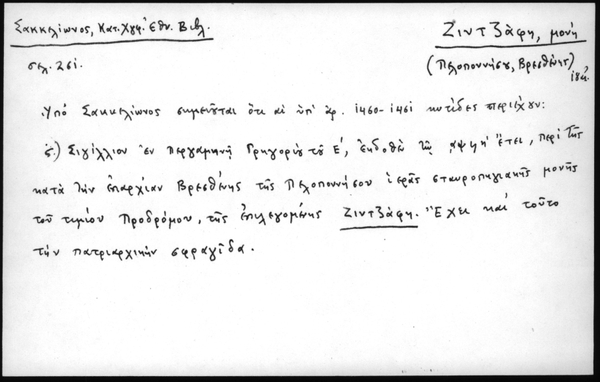 Σακκελίωνος, Κατ. Χγφ. Ἐθν. Βιβλ.
Ζιντζάφη, μονή
σελ. 261.
(Πελοποννήσου, Βρεσθένης)
Ὑπό Σακκελίωνος σημειοῦται ὅτι αἱ ὑπ' ἀρ. 1460-1461 κυτίδες περιέχουν:
ς.) Σιγίλλιον ἐν Περγαμηνῇ Γρηγορίου τοῦ Ε', ἐκδοθὲν τῷ ͵αψϟη' ἔτει, περὶ τῆς
κατὰ τὴν ἐπαρχίαν Βρεσθένης τῆς Πελοποννήσου ἱερᾶς σταυροπηγιακῆς μονῆς
τοῦ τιμίου Προδρόμου, τῆς ἐπιλεγομένης Ζιντζάφη. Ἔχει καὶ τοῦτο
τὴν πατριαρχικὴν σφραγῖδα.